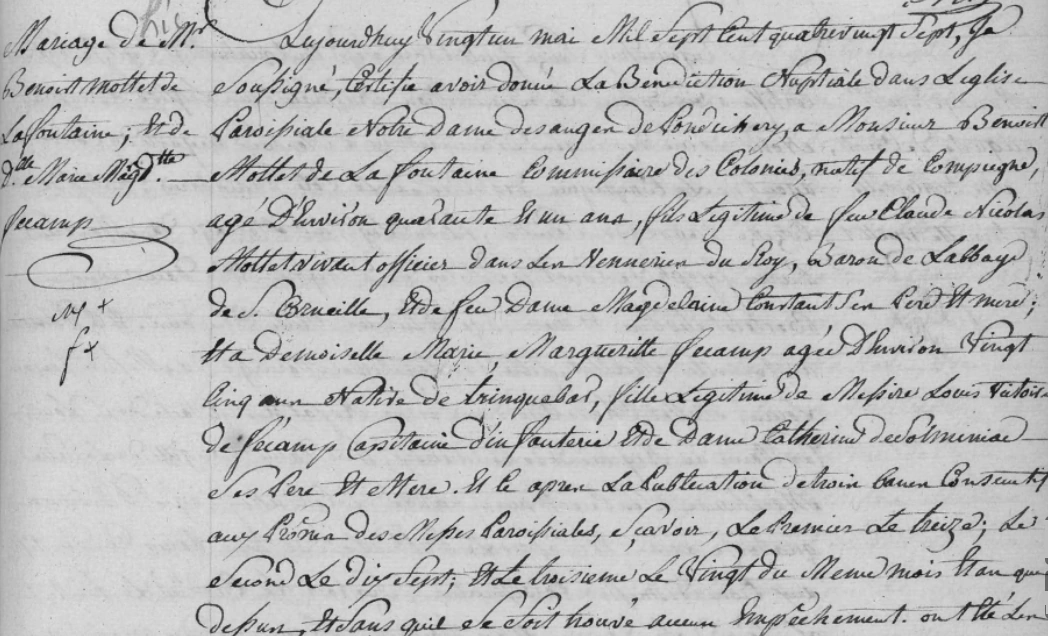 Mariage de Mr
Benoist Mottet de
Lafontaine; Et de
dlle Marie Magdtte
fecamp
Lujourdhuy Vingtun mai Mil Sept Cent quatrevingt Sept, Je
Soussigné, Certifie avoir donné La Bénédiction Nuptiale dans Leglise
Paroissiale Notre Dame des anges de Pondichery, a Monsieur Benoist
Mottet de La fontaine Commissaire des Colonies, natif de Compiegne,
agé D'Environ quarante Et un ans, fils Legitime de feu Claude Nicolas
Mottet vivant officier dans Les Venneries du Roy, Baron de Labbaye
de S. Corneille, Et de feu Dame Magdelaine Constant Ses Pere Et mere;
Et a Demoiselle Marie Margueritte fecamp agée D'Environ Vingt
Cinq ans Native de trinquebar, fille Legitime de Messire Louis Victoire
de fécamp Capitaine d'infanterie Et de Dame Catherine de Solminiac
Ses Pere Et Mere. Et ce apres La Publication de trois bans Consecutifs
aux Prônes des Messes Paroissiales, Sçavoir, Le Premier Le treize; Le
Second Le dix Sept; Et Le troisieme Le Vingt du Meme mois Et an que
dessus, Et Sans quil se Soit trouvé aucun Empêchement. ont Eté Les